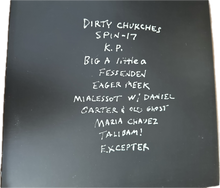 DIRTY CHURCHES
SPIN-17
K.P.
BIG A little a
FESSENDEN
EAGER MEEK
MIALESSOT W/ DANIEL
CARTER & OLD GHOST
MARIA CHAVEZ
TALIBAM!
EXCEPTER